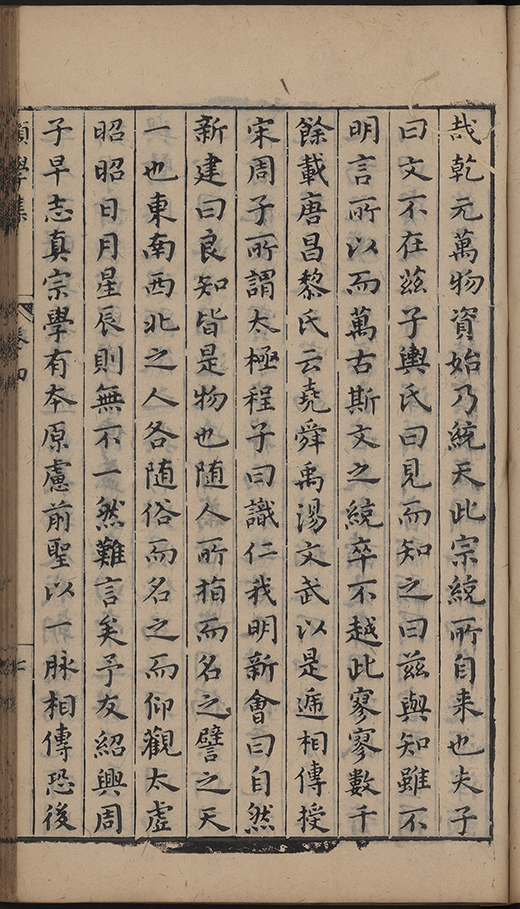 哉乾元萬物資始乃統天此宗統所自来也夫子
曰文不在茲子輿氏曰見而知之曰茲與知雖不
明言所以而萬古斯文之統卒不越此寥寥數千
餘載唐昌黎氏云堯舜禹湯文武以是遞相傳授
宋周子所謂太極程子曰識仁我明新會曰自然
新建曰良知皆是物也随人所指而名之譬之天
一也東南西北之人各随俗而名之而仰觀太虛
昭昭日月星辰則無不一然難言矣予友紹興周
子早志真宗學有本原慮前聖以一脉相傳恐後
學集
卷四
七